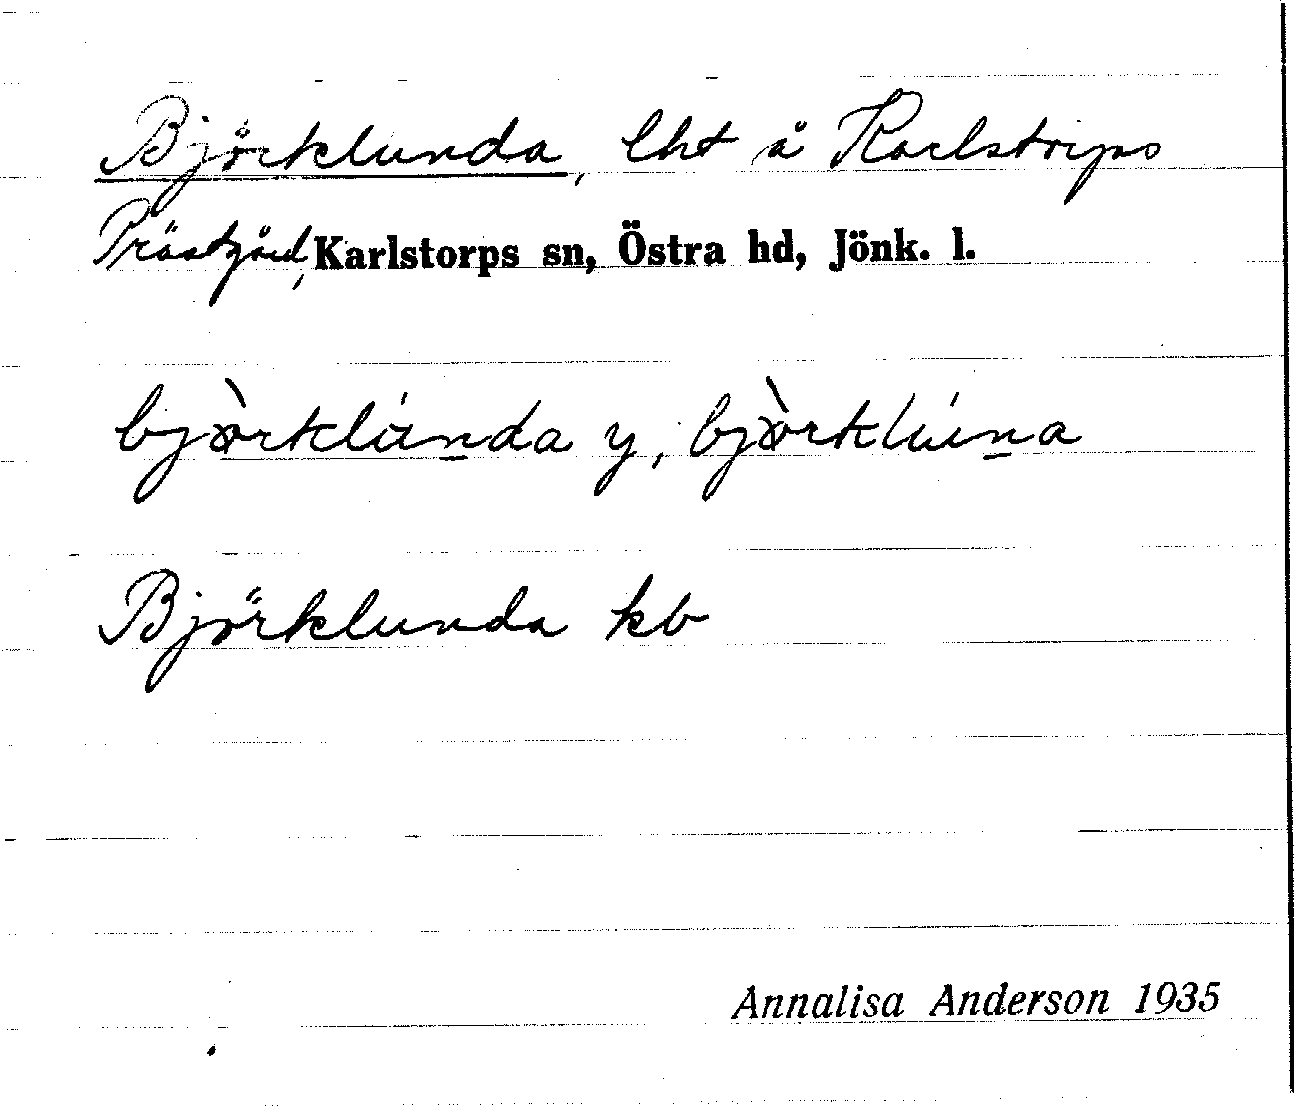 Björklunda, lht å Karlstorps
Prästgård, Karlstorps sn, Östra hd, Jönk. l.
bjòrklúnda y, bjòrklúna
Björklunda kb
Annalisa Anderson 1935